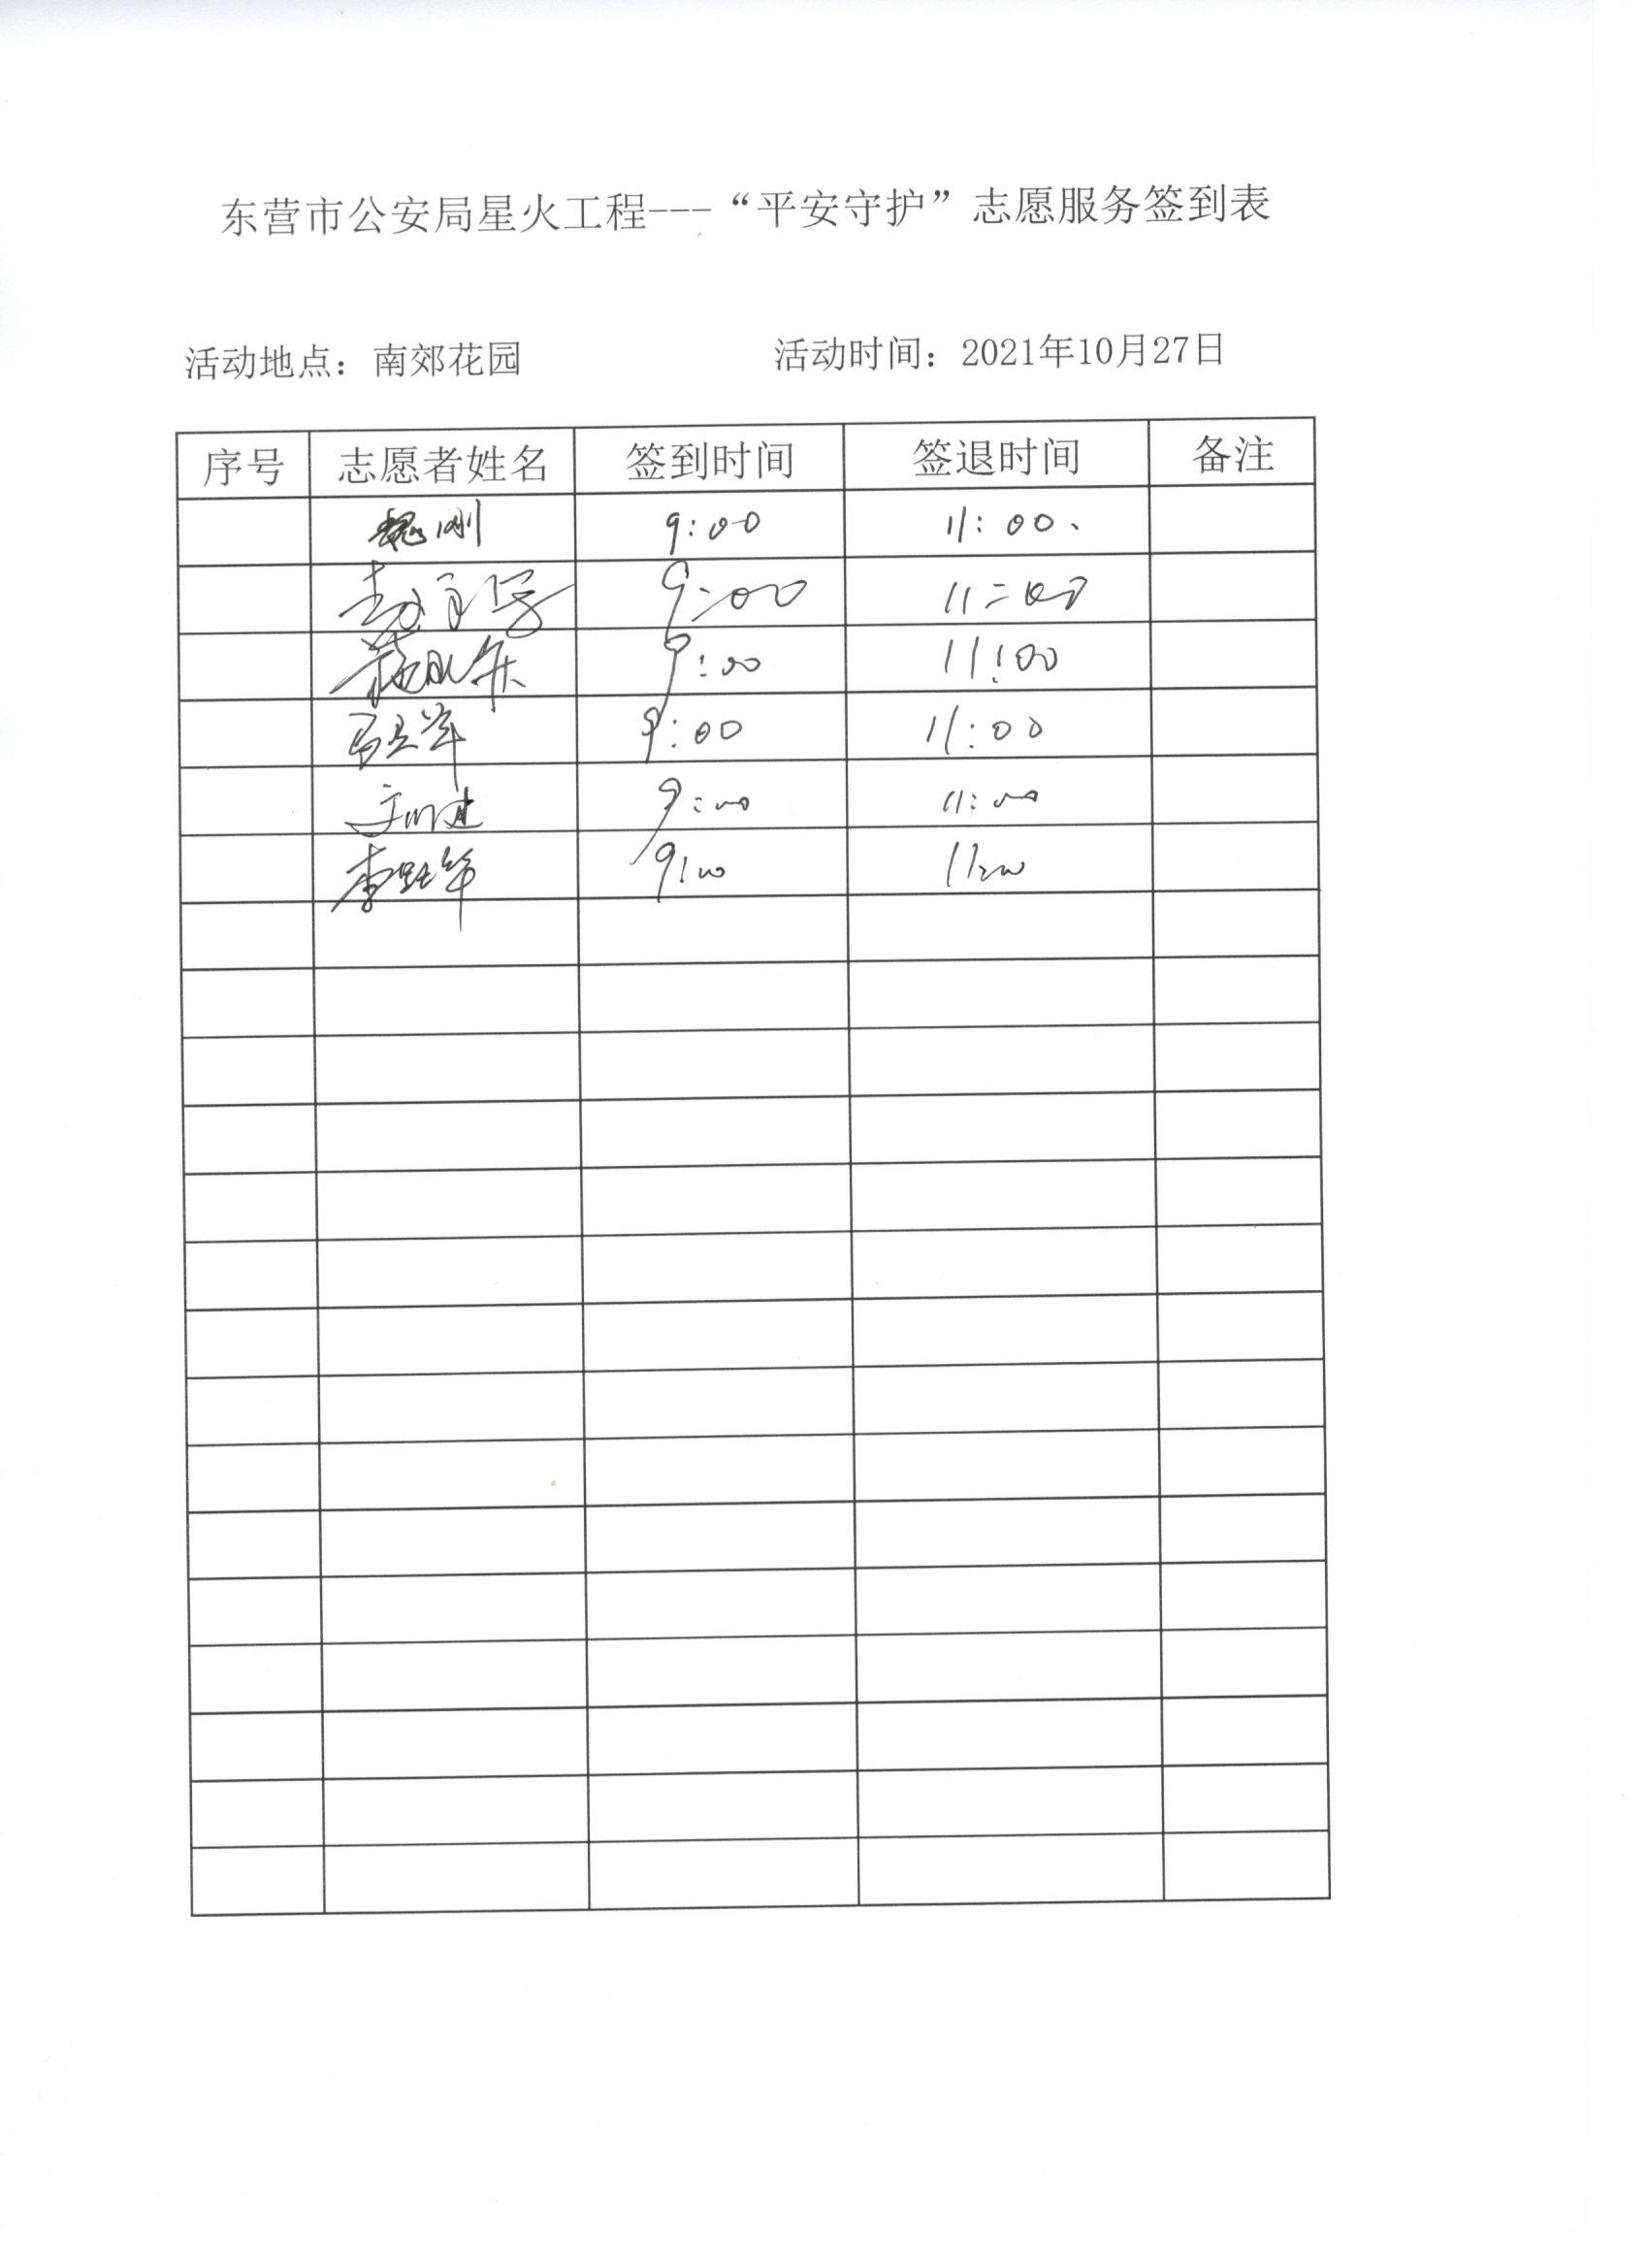 东营市公安局星火工程---“平安守护”志愿服务签到表
活动地点：南郊花园 活动时间：2021年10月27日
序号 志愿者姓名 签到时间 签退时间 备注
魏刚 9:00 11:00、
9:00 11:00
9:00 11:00
9:00 11:00
9:00 11:00
李 军 9:00 11:00